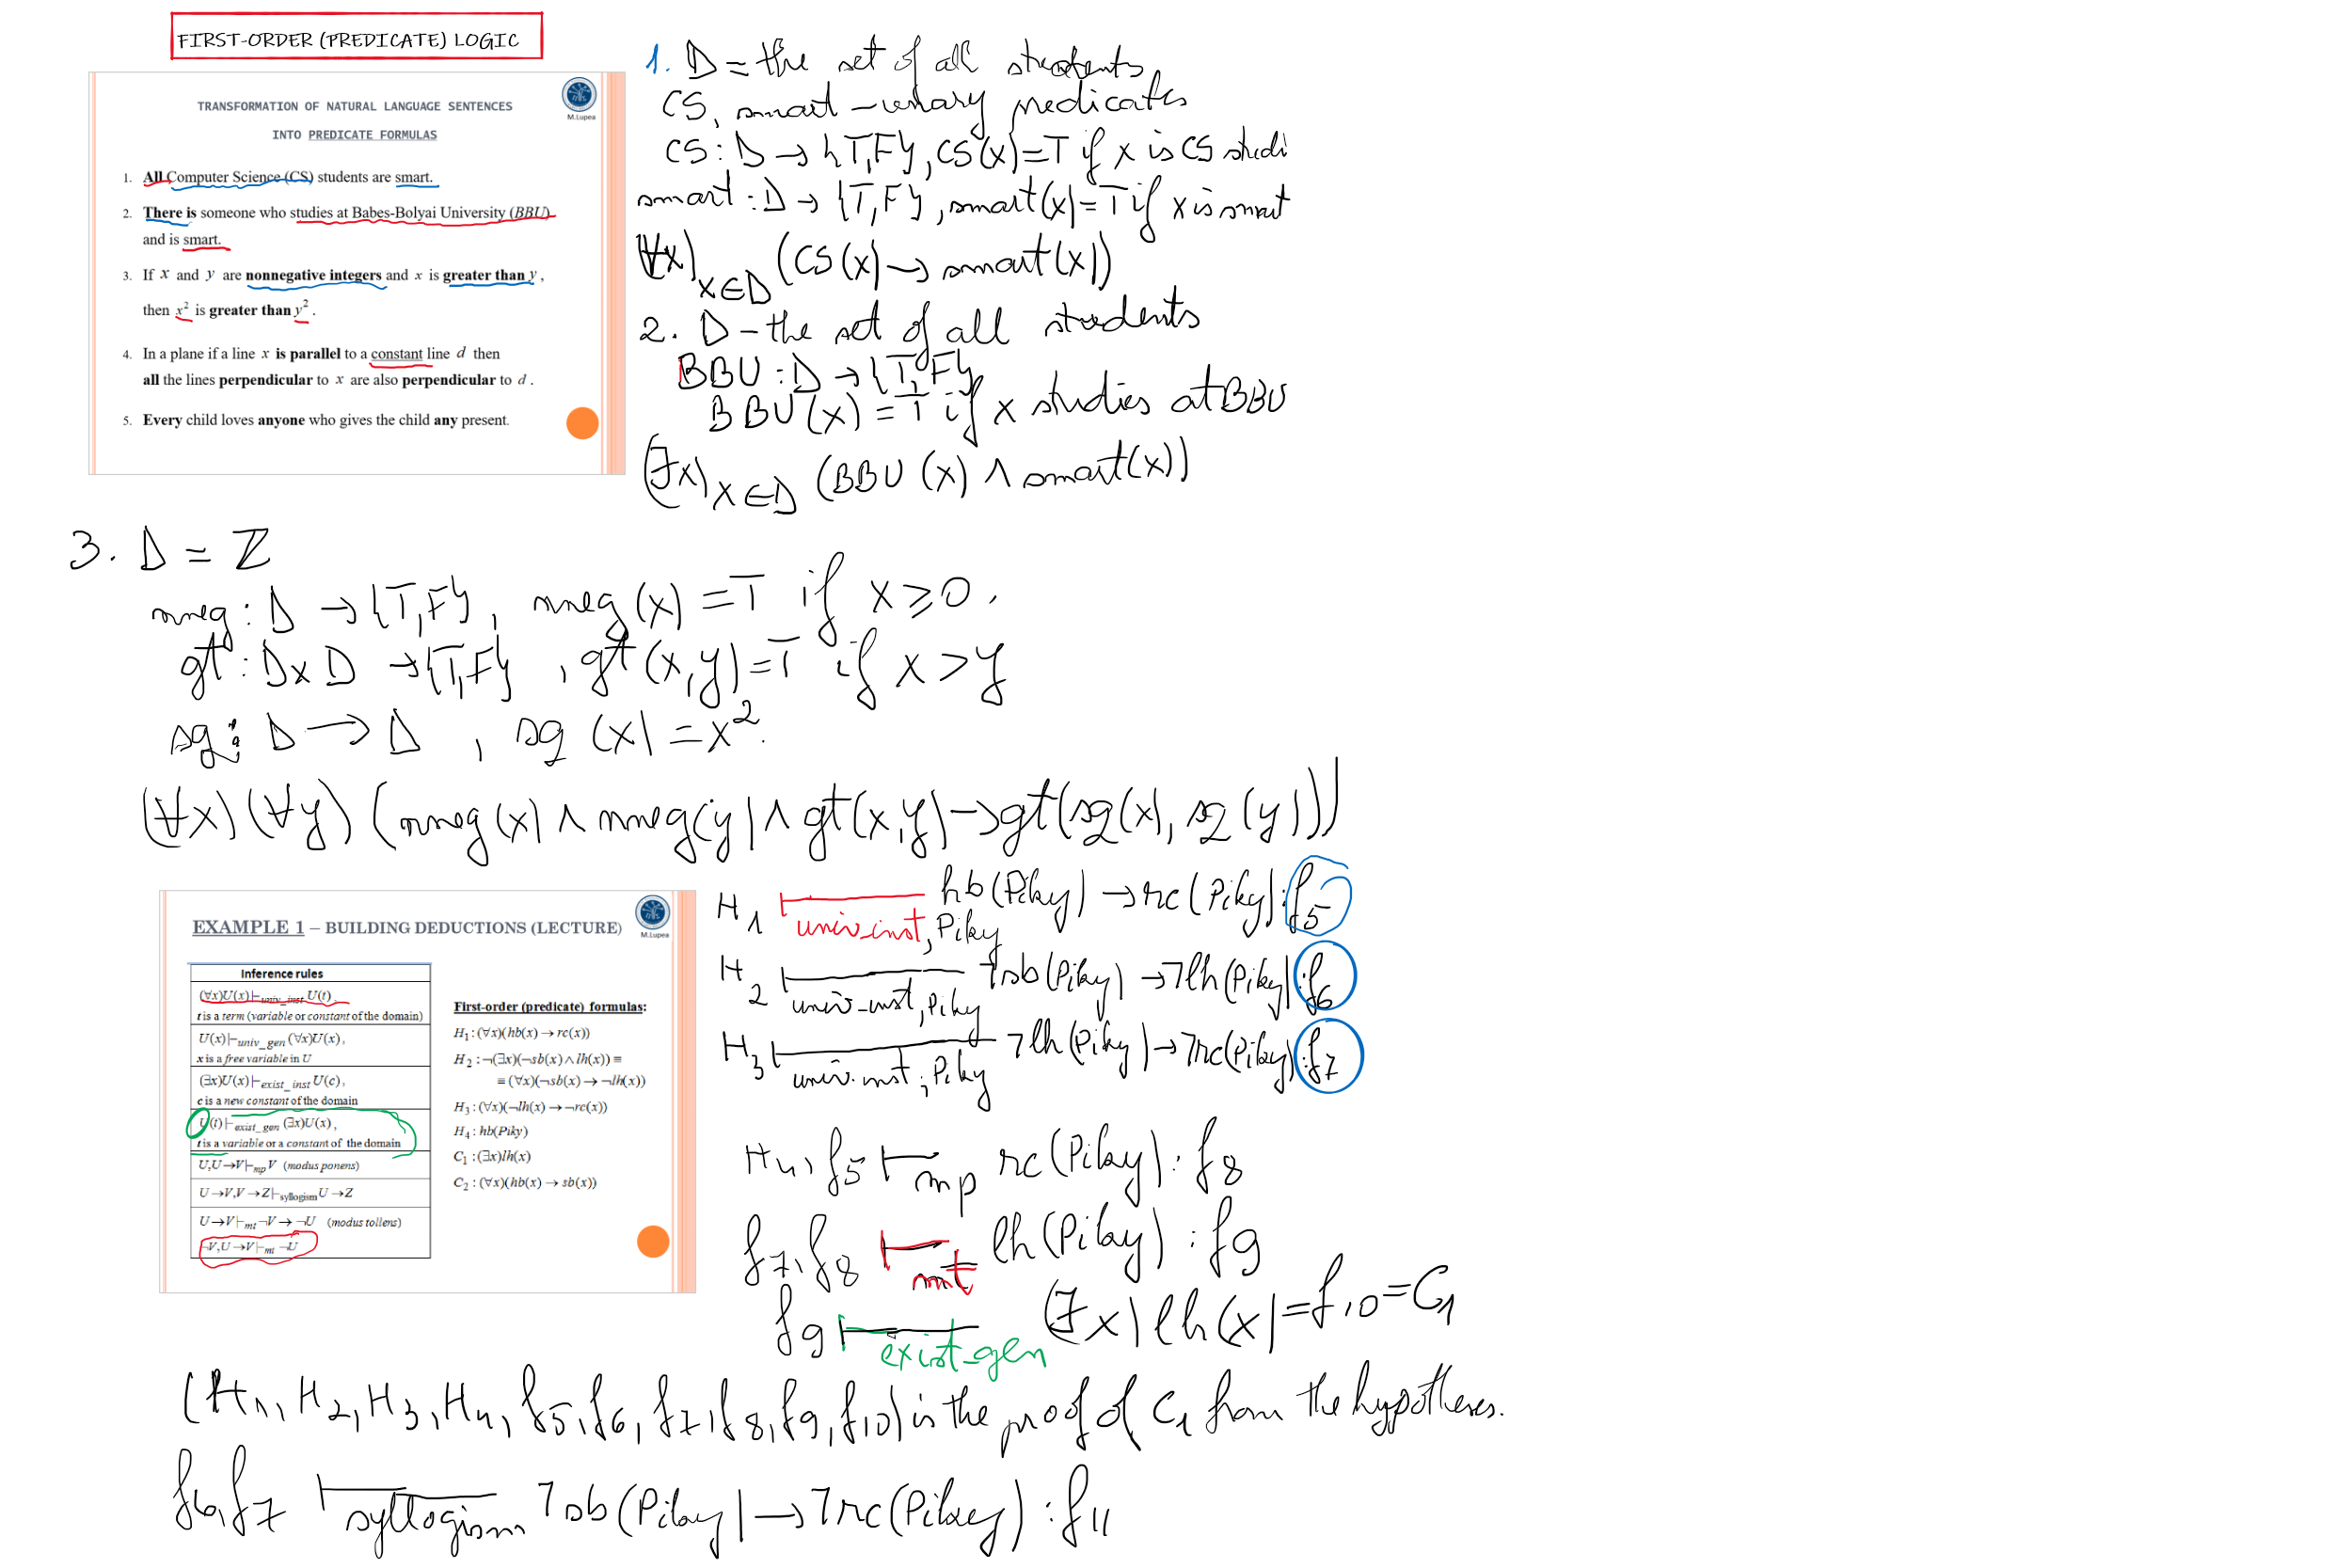 FIRST-ORDER (PREDICATE) LOGIC
M.Lupea
TRANSFORMATION OF NATURAL LANGUAGE SENTENCES
INTO PREDICATE FORMULAS
1. All Computer Science (CS) students are smart.
2. There is someone who studies at Babes-Bolyai University (BBU)
and is smart.
3. If x and y are nonnegative integers and x is greater than y,
then x² is greater than y².
4. In a plane if a line x is parallel to a constant line d then
all the lines perpendicular to x are also perpendicular to d.
5. Every child loves anyone who gives the child any present.
1. D = the set of all students
CS, smart - unary predicates
CS: D → {T,F}, CS(x)=T if x is CS studi
smart: D → {T,F}, smart(x)=T if x is smart
(∀x) x∈D (CS(x) → smart(x))
2. D - the set of all students
BBU: D → {T,F}
BBU(x) = T if x studies at BBU
(∃x) x∈D (BBU(x) ∧ smart(x))
3. D = Z
nneg: D → {T,F}, nneg(x) = T if x ≥ 0.
gt: D×D → {T,F}, gt(x,y) = T if x > y
sq: D → D, sq(x) = x².
(∀x)(∀y)(nneg(x) ∧ nneg(y) ∧ gt(x,y) → gt(sq(x), sq(y)))
M.Lupea
EXAMPLE 1 – BUILDING DEDUCTIONS (LECTURE)
Inference rules
(∀x)U(x) ⊢univ_inst U(t),
t is a term (variable or constant of the domain)
U(x) ⊢univ_gen (∀x)U(x),
x is a free variable in U
(∃x)U(x) ⊢exist_inst U(c),
c is a new constant of the domain
U(t) ⊢exist_gen (∃x)U(x),
t is a variable or a constant of the domain
U,U→V ⊢mp V (modus ponens)
U→V,V→Z ⊢syllogism U→Z
U→V ⊢mt ¬V→¬U (modus tollens)
¬V,U→V ⊢mt ¬U
First-order (predicate) formulas:
H1 : (∀x)(hb(x) → rc(x))
H2 : ¬(∃x)(¬sb(x) ∧ lh(x)) ≡
≡ (∀x)(¬sb(x) → ¬lh(x))
H3 : (∀x)(¬lh(x) → ¬rc(x))
H4 : hb(Piky)
C1 : (∃x)lh(x)
C2 : (∀x)(hb(x) → sb(x))
H1 ⊢univ_inst, Piky hb(Piky) → rc(Piky): f5
H2 ⊢univ_inst, Piky ¬sb(Piky) → ¬lh(Piky): f6
H3 ⊢univ.inst; Piky ¬lh(Piky) → ¬rc(Piky): f7
H4, f5 ⊢mp rc(Piky): f8
f7, f8 ⊢mt lh(Piky): f9
f9 ⊢exist-gen (∃x) lh(x) = f10 = C1
(H1, H2, H3, H4, f5, f6, f7, f8, f9, f10) is the proof of C1 from the hypotheses.
f6, f7 ⊢syllogism ¬sb(Piky) → ¬rc(Piky): f11